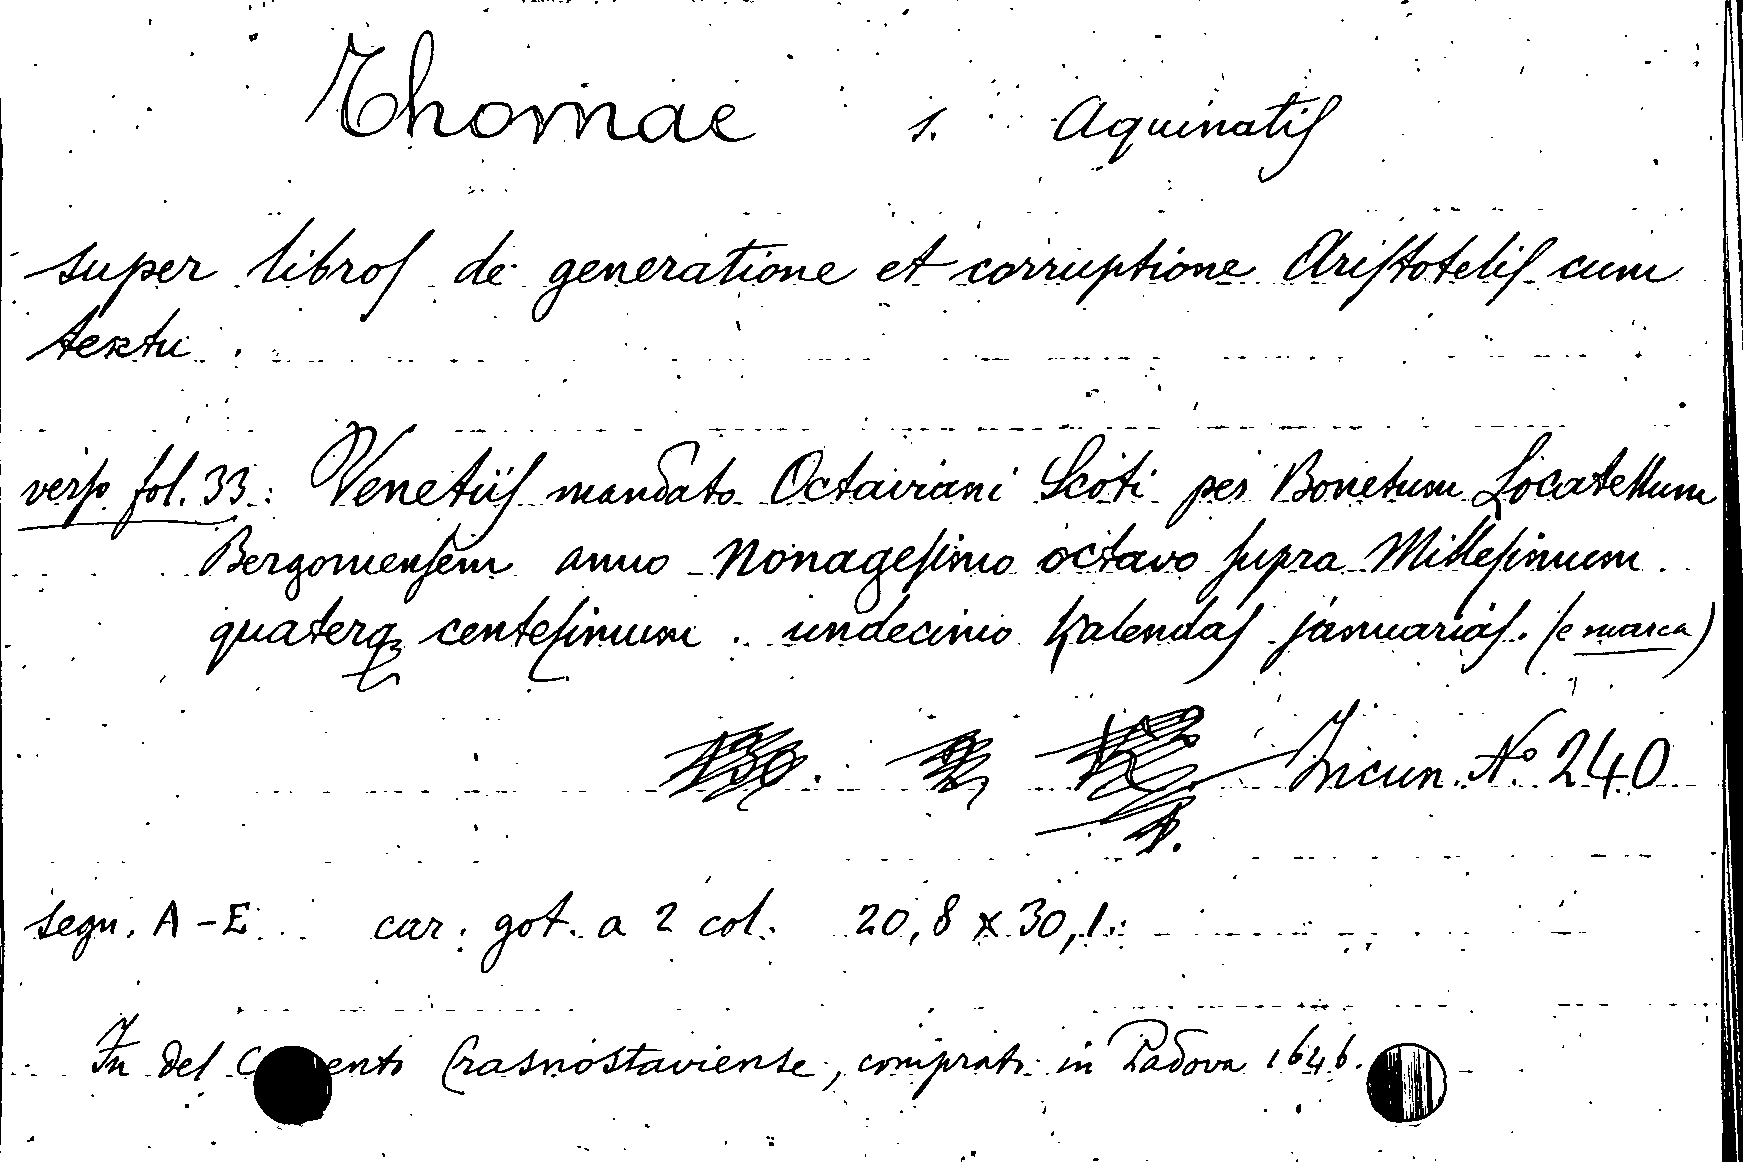 Thomae s. Aquinatis
super libros de generatione et corruptione Aristotelis cum
textu.
verso fol. 33: Venetiis mandato Octaviani Scoti per Bonetum Locatellum
Bergomensem anno Nonagesimo octavo supra Millesimum
quaterq centesimum. undecimo kalendas januarias. (e marca)
Incun. No. 240
segn. A-E car. got. a 2 col. 20,8 x 30,1.
Fu del Crasnostaviense, comprato in Padova 1646.